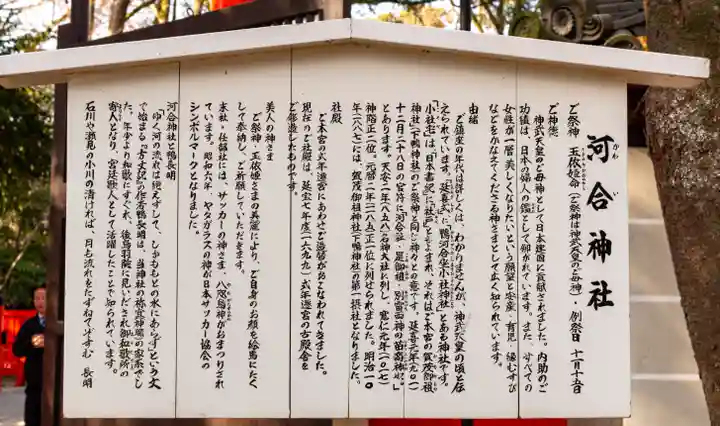 河合神社
かわい
ご祭神 玉依姫命(ご祭神は神武天皇のご母神)・例祭日 十一月十五日
ご神徳
神武天皇のご母神として日本建国に貢献されました。内助のご
功績は、日本の婦人の鑑として仰がれています。また、すべての
女性が一層美しくなりたいという願望と安産・育児・縁むすび
などをかなえてくださる神さまとして広く知られています。
由緒
ご鎮座の年代は詳しくは、わかりませんが、神武天皇の頃と伝
えられています。「延喜式」に「鴨河合坐小社神社」とある神社です。
「小社宅」は、「日本書紀」に「社戸」ともよまれ、それはご本宮の賀茂御祖
神社(下鴨神社)のご祭神と同じ神々との意です。延喜元年(九〇一)
十二月二十八日の官符に「河合社、是御祖・別雷両神の苗裔神也。」
とあります。天安二年(八五八)名神大社に列し、寛仁元年(一〇一七)
神階正二位。元暦二年(一一八五)正一位に列せられました。明治一〇
年(一八七七)には、賀茂御祖神社(下鴨神社)の第一摂社となりました。
社殿
ご本宮の式年遷宮にあわせご造替がおこなわれてきました。
現在のご社殿は、延宝七年度(一六七九)式年遷宮の古殿舎を
ご修造したものです。
美人の神さま
ご祭神・玉依姫さまの美麗により、ご自身のお顔を絵馬にたく
して奉納し、ご祈願していただきます。
末社・任部社には、サッカーの神さま、八咫烏神がおまつりされ
ています。昭和六年、ヤタガラスの神が日本サッカー協会の
シンボルマークとなりました。
河合神社と鴨長明
「ゆく河の流れは絶えずして、しかももとの水にあらず」という文
で始まる『方丈記』の作者鴨長明は、当神社の祢宜神職の家系でし
た。年少より和歌にすぐれ、後鳥羽院に見いだされ御和歌所の
寄人となり、宮廷歌人として活躍したことで知られています。
石川や瀬見の小川の清ければ、月も流れをたずねてぞすむ 長明